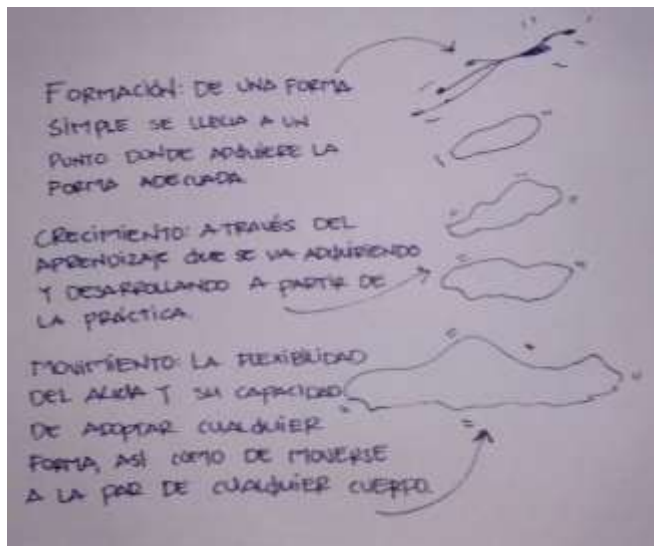 FORMACIÓN: DE UNA FORMA
SIMPLE SE LLEGA A UN
PUNTO DONDE ADQUIERE LA
FORMA ADECUADA.
CRECIMIENTO: A TRAVÉS DEL
APRENDIZAJE QUE SE VA ADQUIRIENDO
Y DESARROLLANDO A PARTIR DE
LA PRÁCTICA.
MOVIMIENTO: LA FLEXIBILIDAD
DEL AGUA Y SU CAPACIDAD
DE ADOPTAR CUALQUIER
FORMA, ASÍ COMO DE MOVERSE
A LA PAR DE CUALQUIER CUERPO.